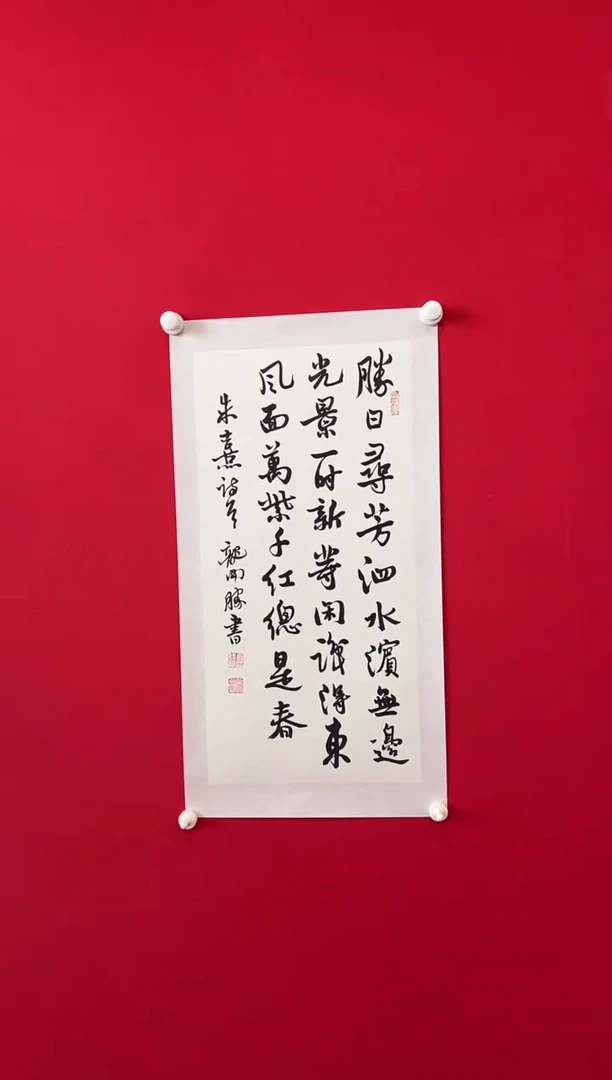 勝日尋芳泗水濱無邊
光景一時新等閑識得東
風面萬紫千紅總是春
朱熹詩一首 龍開勝書